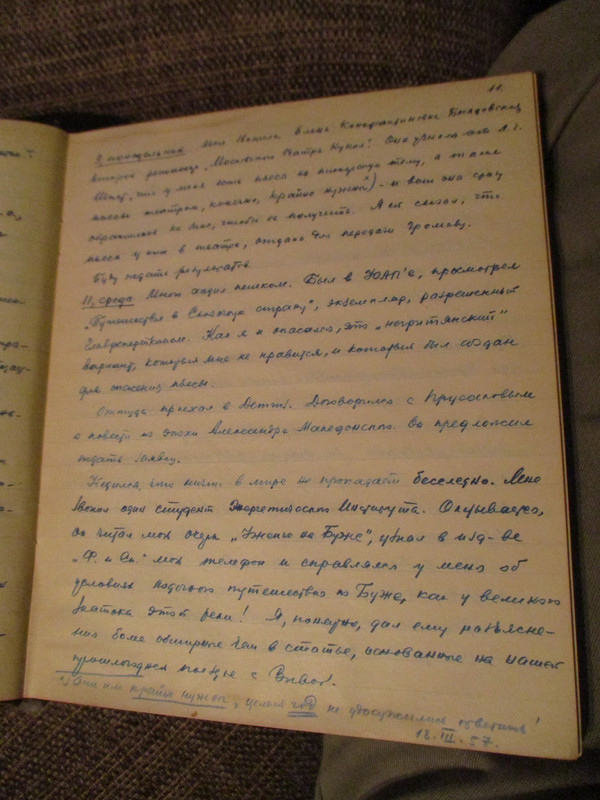 11.
9, понедельник Мне звонила Елена Константиновна
которой режиссер „Московского театра кукол“. Она узнала от Л. Г.
что у меня есть пьеса на
театрам, конечно, крайне нужной*) - и вот она сразу
обратилась ко мне, чтобы ее получить. Я ей сказал, что
пьеса у них в театре, отдана для передачи Громову.
Буду ждать результатов.
11, среда Много ходил пешком. Был в УОАП'е, просмотрел
„Путешествия в Слонову страну“, экземпляр, разрешенный
Главреперткомом. Как я и опасался, это „негритянский“
вариант, который мне не нравится, и который был создан
для спасения пьесы.
Оттуда проехал в Детгиз. Договорился с
о повести из эпохи Александра Македонского. Он предложил
подать заявку.
что ничто в мире не пропадает бесследно. Мне
звонил один студент Энергетического Института. Оказывается,
он читал мой очерк на Буге“, узнал в изд-ве
„Ф. и Сп.“ мой телефон и справлялся у меня об
условиях лодочного путешествия по Бугу, как у великого
знатока этой реки! Я, понятно, дал ему разъясне-
ния более обширные чем в статье, основанные на нашей
прошлогодней поездке с
*) Она им крайне нужна, целый год не удосужились ответить!
12.III.57.